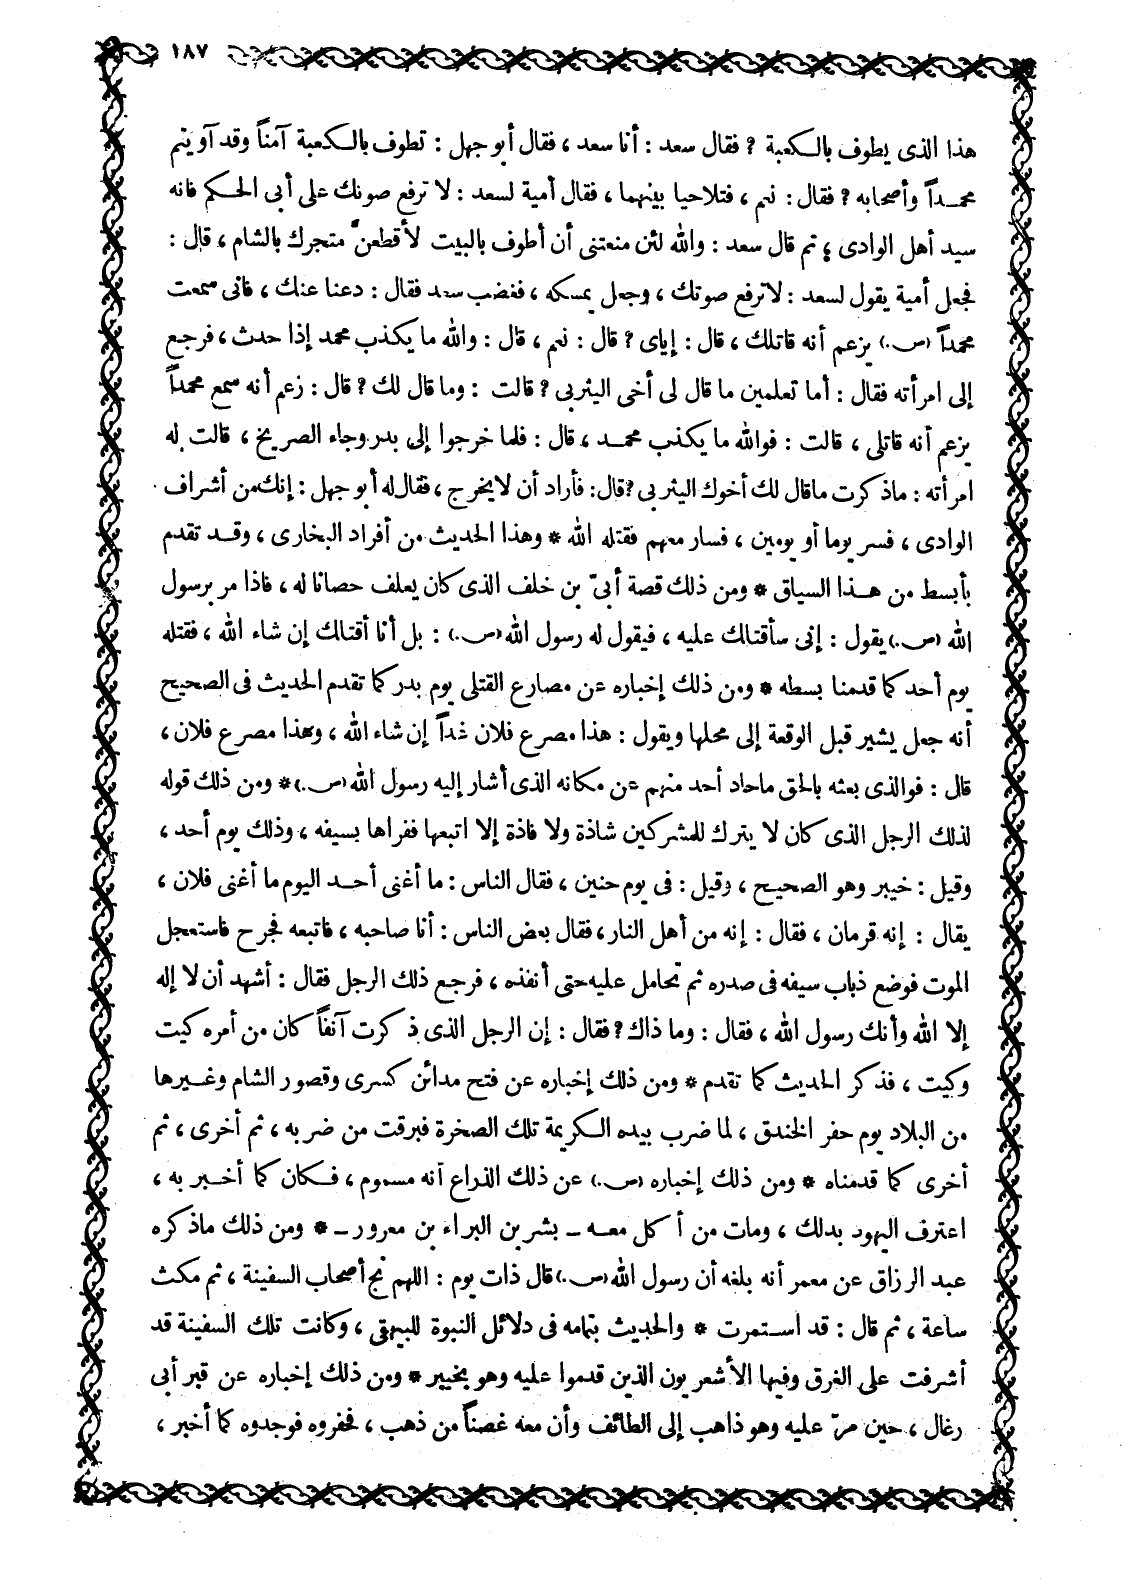 ١٨٧
هذا الذى يطوف بالكعبة ? فقال سعد : أنا سعد ، فقال أبو جهل : تطوف بالكعبة آمناً وقد آويتم
محمداً وأصحابه ? فقال : نعم ، فتلاحيا بينهما ، فقال أمية لسعد : لا ترفع صوتك على أبى الحكم فانه
سيد أهل الوادى ؛ ثم قال سعد : والله لئن منعتنى أن أطوف بالبيت لأقطعنَّ متجرك بالشام ، قال :
فجعل أمية يقول لسعد : لا ترفع صوتك ، وجعل يمسكه ، فغضب سعد فقال : دعنا عنك ، فانى سمعت
محمداً (ص.) يزعم أنه قاتلك ، قال : إياى ? قال : نعم ، قال : والله ما يكذب محمد إذا حدث ، فرجع
إلى امرأته فقال : أما تعلمين ما قال لى أخى اليثربى ? قالت : وما قال لك ? قال : زعم أنه سمع محمداً
يزعم أنه قاتلى ، قالت : فوالله ما يكذب محمد ، قال : فلما خرجوا إلى بدر وجاء الصريخ ، قالت له
امرأته : ماذكرت ماقال لك أخوك اليثربى ? قال : فأراد أن لا يخرج ، فقال له أبو جهل : إنك من أشراف
الوادى ، فسر يوما أو يومين ، فسار معهم فقتله الله * وهذا الحديث من أفراد البخارى ، وقد تقدم
بأبسط من هذا السياق * ومن ذلك قصة أبىّ بن خلف الذى كان يعلف حصانا له ، فاذا مر برسول
الله (ص.) يقول : إنى سأقتلك عليه ، فيقول له رسول الله (ص.) : بل أنا أقتلك إن شاء الله ، فقتله
يوم أحد كما قدمنا بسطه * ومن ذلك إخباره عن مصارع القتلى يوم بدر كما تقدم الحديث فى الصحيح
أنه جعل يشير قبل الوقعة إلى محلها ويقول : هذا مصرع فلان غداً إن شاء الله ، وهذا مصرع فلان ،
قال : فوالذى بعثه بالحق ماحاد أحد منهم عن مكانه الذى أشار إليه رسول الله (ص.) * ومن ذلك قوله
لذلك الرجل الذى كان لا يترك للمشركين شاذة ولا فاذة إلا اتبعها ففراها بسيفه ، وذلك يوم أحد ،
وقيل : خيبر وهو الصحيح ، وقيل : فى يوم حنين ، فقال الناس : ما أغنى أحد اليوم ما أغنى فلان ،
يقال : إنه قرمان ، فقال : إنه من أهل النار ، فقال بعض الناس : أنا صاحبه ، فاتبعه فجرح فاستعجل
الموت فوضع ذباب سيفه فى صدره ثم تحامل عليه حتى أنفذه ، فرجع ذلك الرجل فقال : أشهد أن لا إله
إلا الله وأنك رسول الله ، فقال : وما ذاك ? فقال : إن الرجل الذى ذكرت آنفاً كان من أمره كيت
وكيت ، فذكر الحديث كما تقدم * ومن ذلك إخباره عن فتح مدائن كسرى وقصور الشام وغيرها
من البلاد يوم حفر الخندق ، لما ضرب بيده الكريمة تلك الصخرة فبرقت من ضربه ، ثم أخرى ، ثم
أخرى كما قدمناه * ومن ذلك إخباره (ص.) عن ذلك الذراع أنه مسموم ، فكان كما أخبر به ،
اعترف اليهود بذلك ، ومات من أكل معه ــ بشر بن البراء بن معرور ــ * ومن ذلك ماذكره
عبد الرزاق عن معمر أنه بلغه أن رسول الله (ص.) قال ذات يوم : اللهم نج أصحاب السفينة ، ثم مكث
ساعة ، ثم قال : قد استمرت * والحديث بتمامه فى دلائل النبوة للبيهقى ، وكانت تلك السفينة قد
أشرفت على الغرق وفيها الأشعريون الذين قدموا عليه وهو بخيبر * ومن ذلك إخباره عن قبر أبى
رغال ، حين مرّ عليه وهو ذاهب إلى الطائف وأن معه غصناً من ذهب ، فحفروه فوجدوه كما أخبر ،